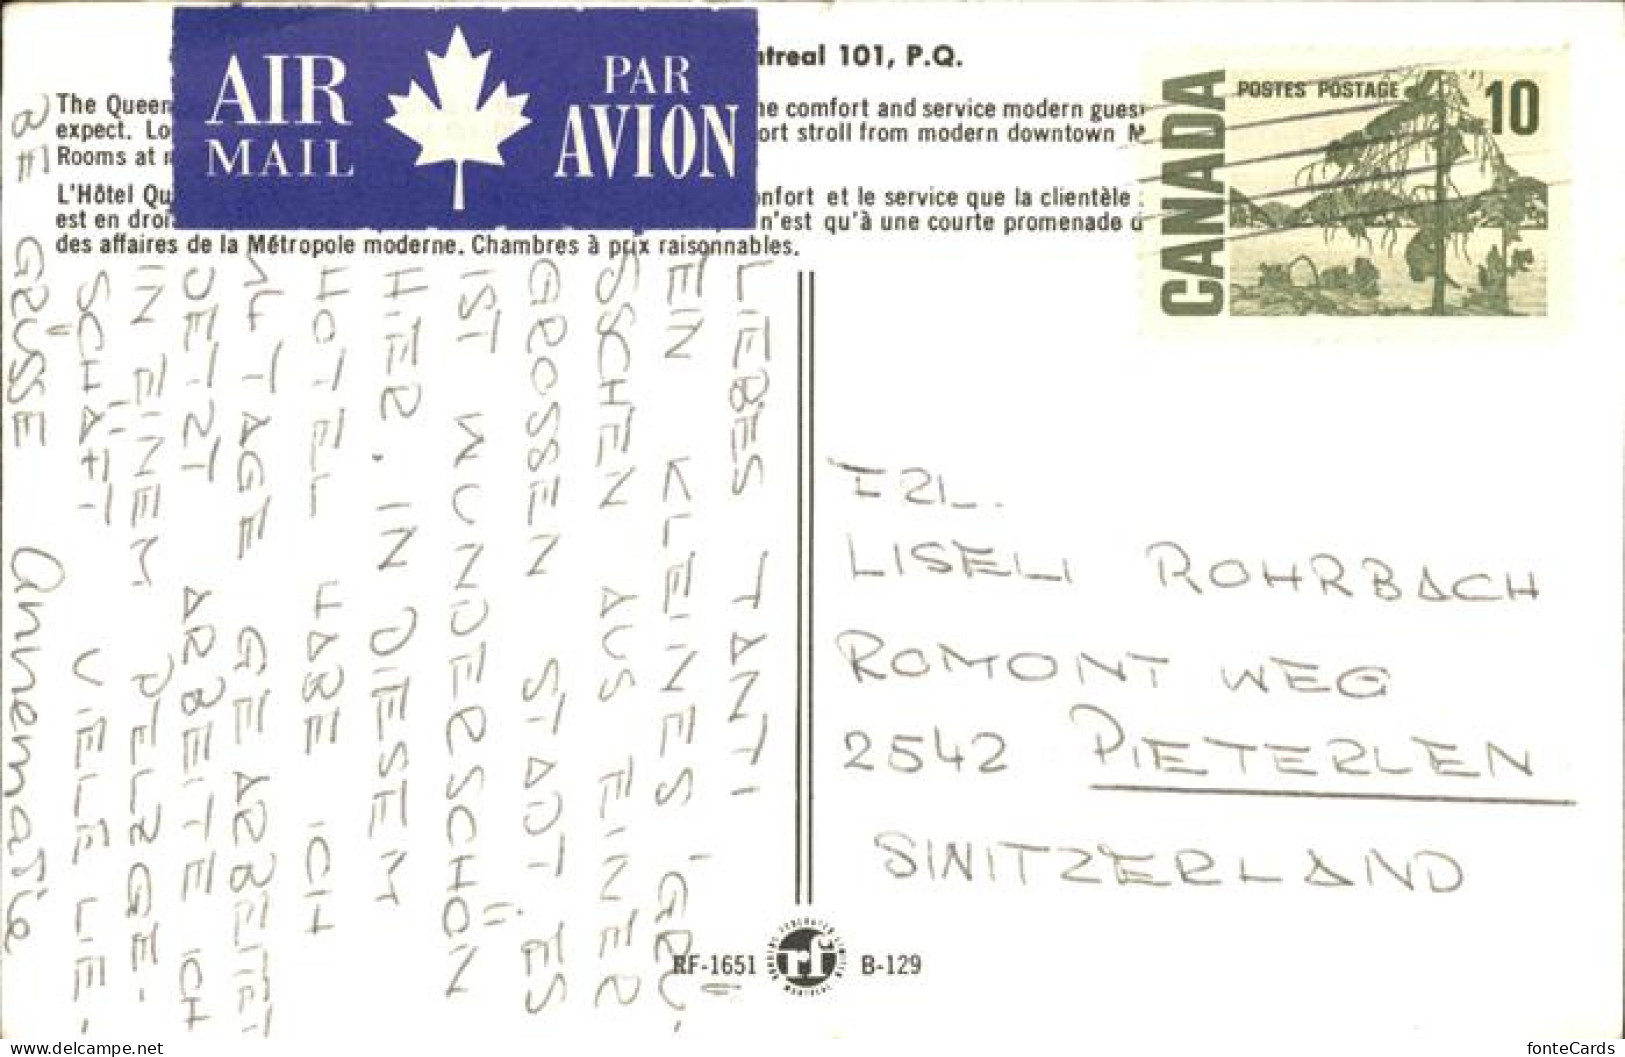 ntreal 101, P.Q.
AIR
MAIL
PAR
AVION
The Queen he comfort and service modern gues
expect. Lo ort stroll from modern downtown M
Rooms at
L'Hôtel Qu onfort et le service que la clientèle
est en droi n'est qu'à une courte promenade d
des affaires de la Métropole moderne. Chambres à prix raisonnables.
CANADA
POSTES POSTAGE
10
LIEBES TANTI
EIN KLEINES GRÜ-
SSCHEN AUS EINER
GROSSEN STADT ES
IST WUNDERSCHÖN
HIER. IN DIESEM
HOTEL HABE ICH
14 TAGE GEARBEITET
JETZT ARBEITE ICH
IN EINEM PELZGE-
SCHÄFT VIELE LIE-
BE GRÜSSE Annemarie
FRL.
LISELI ROHRBACH
ROMONT WEG
2542 PIETERLEN
SWITZERLAND
RF-1651
B-129
fonteCards
delcampe.net